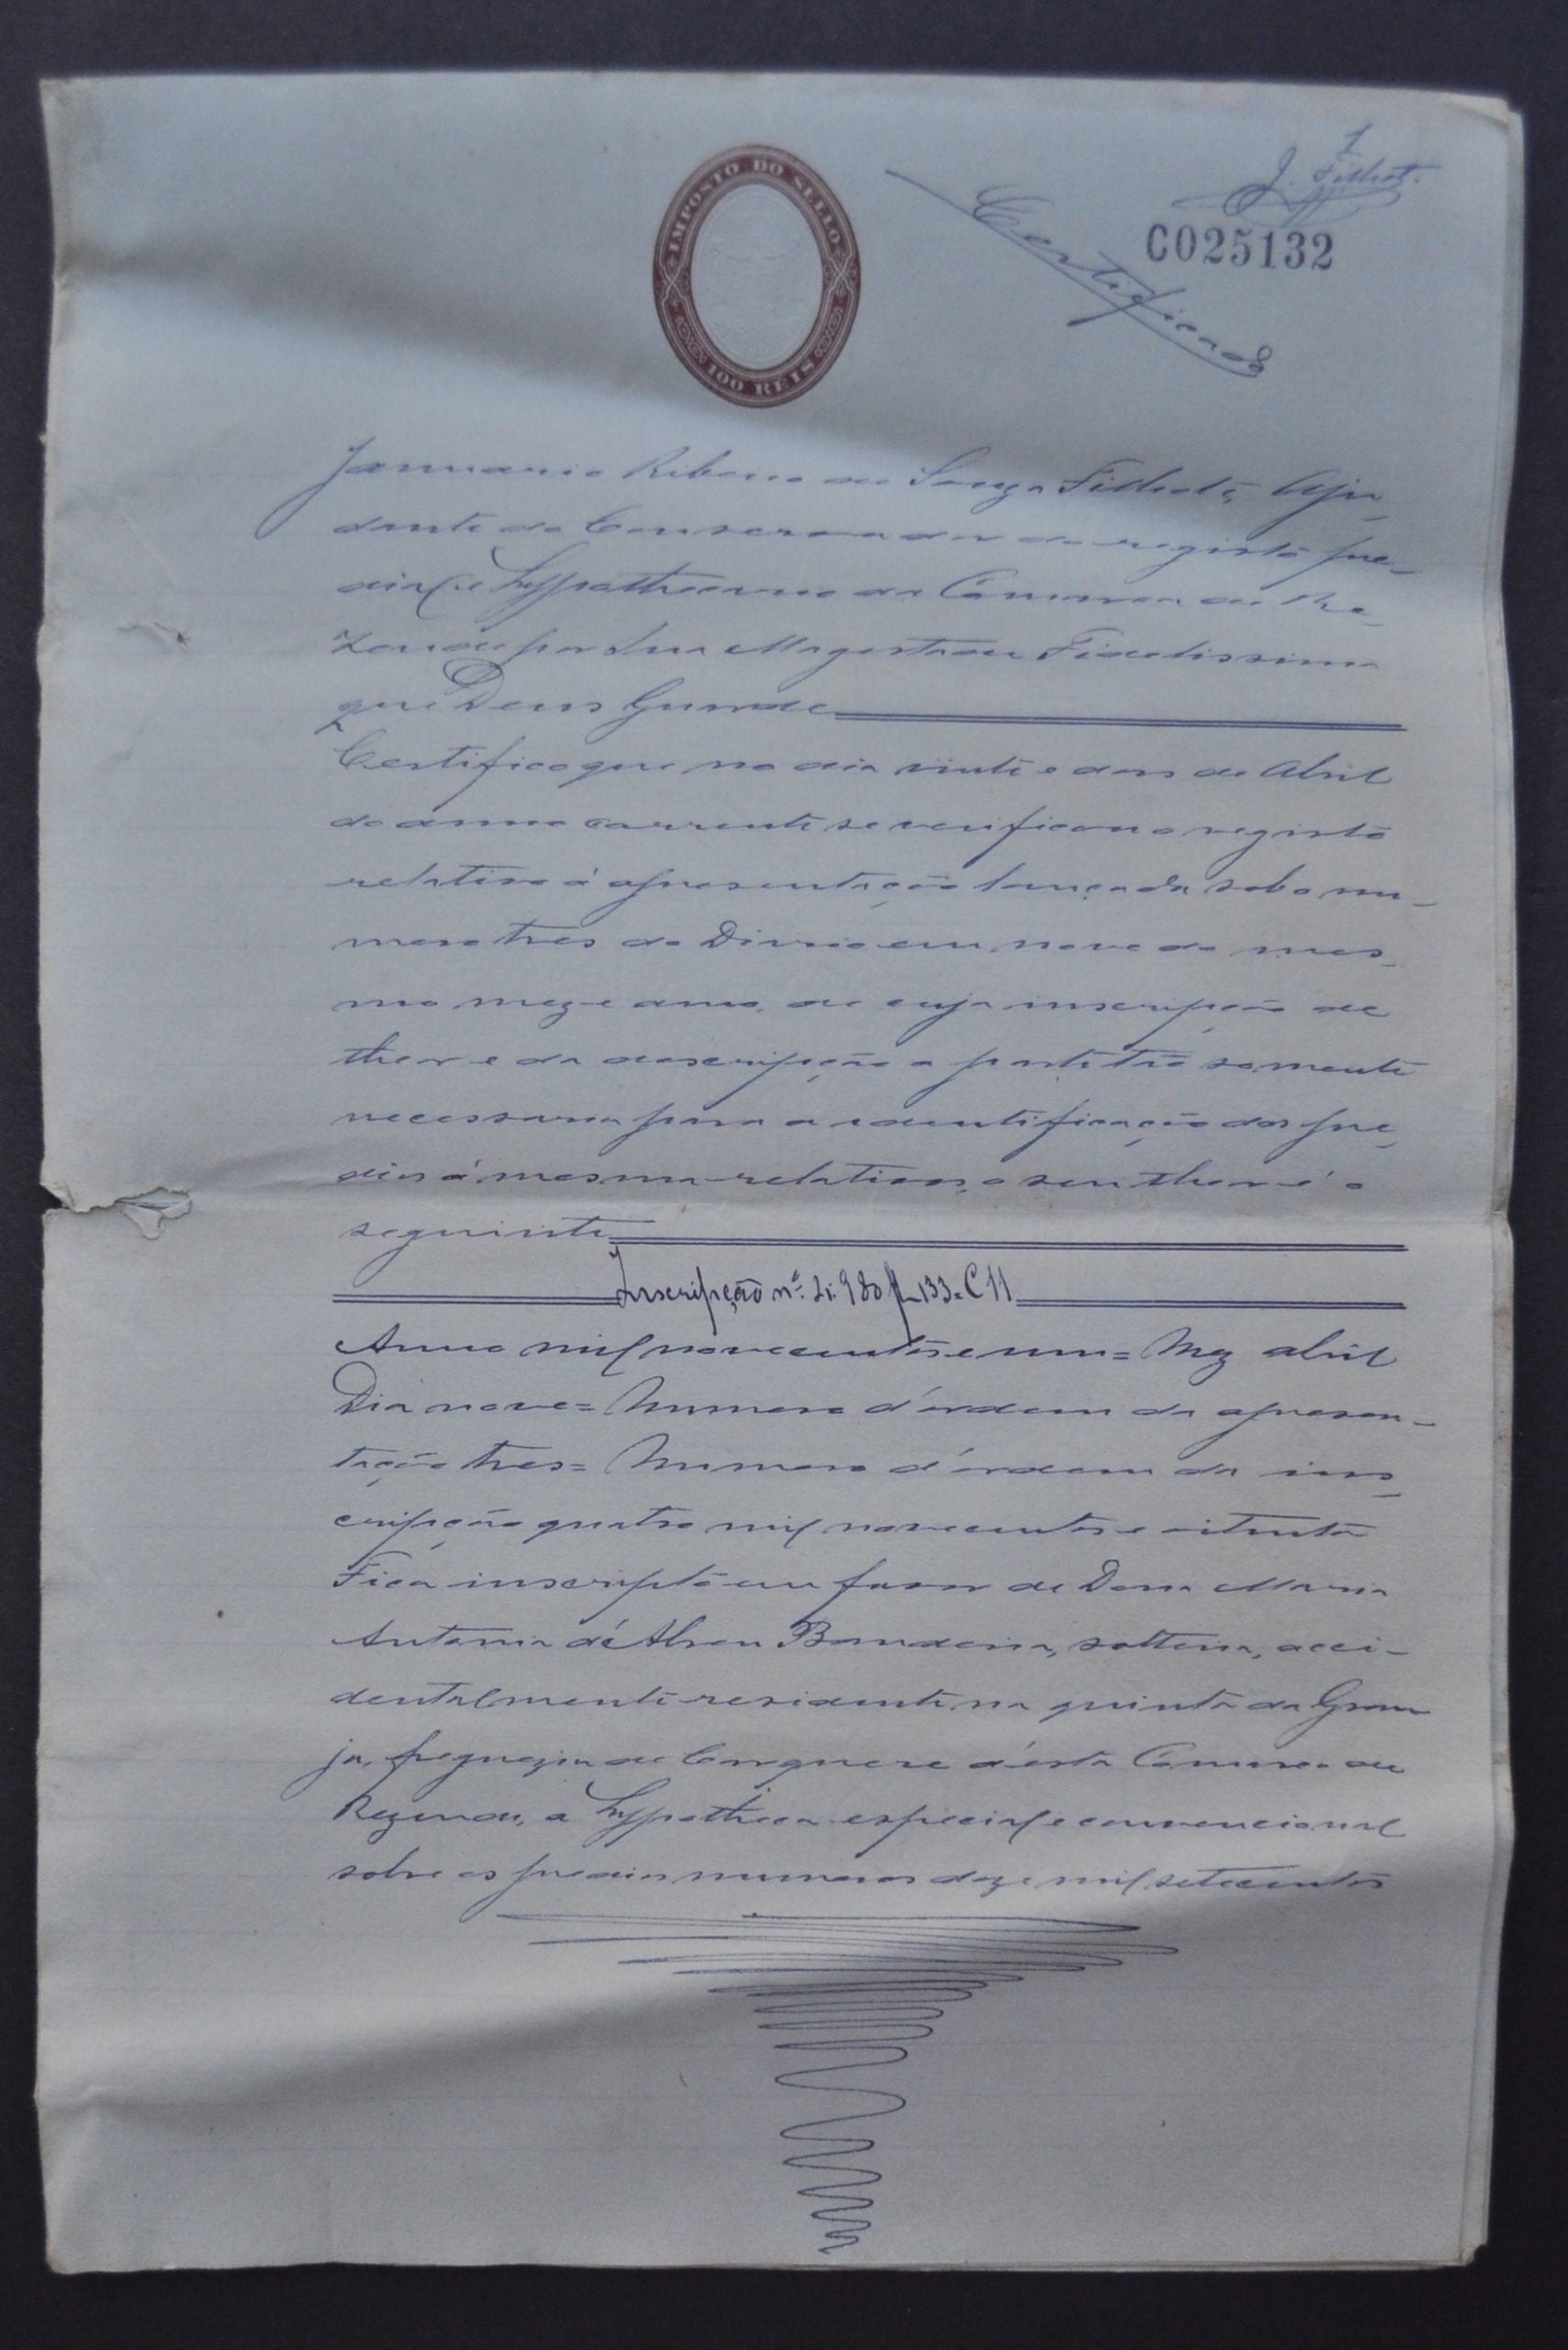 IMPOSTO DO SELLO
100 RÉIS
1
J. Filhot.
C025132
Certificado
Januario Ribeiro de Souza Filhotê, Aju-
dante do Conservador do registo pre-
dial e hypothecario da Cómarca de Re-
zende por Sua Magestade Fidelissima
que Deus Guarde
Certifico que no dia vinte e dous de Abril
do anno corrente se verificou o registo
relativo á apresentação lançada sob o nu-
mero tres do Diario em nove do mes-
mo mez e anno, de cuja inscripção de
theor e da descripção a parte tão somente
necessaria para a identificação dos pre-
dios á mesma relativos, o seu theor é o
seguinte
Inscripção nº 4:980 fl 133 = C 11
Anno mil novecentos e um = Mez abril
Dia nove = Numero d'ordem da apresen-
tação tres = Numero d'ordem da ins-
cripção quatro mil novecentos e oitenta
Fica inscripto em favor de Dona Maria
Antonia d'Abreu Bandeira, solteira, acci-
dentalmente residente na quinta da Gran-
ja, freguezia de Carquere d'esta Cómarca de
Rezende, a hypotheca especial e convencional
sobre os predios numeros doze mil setecentos